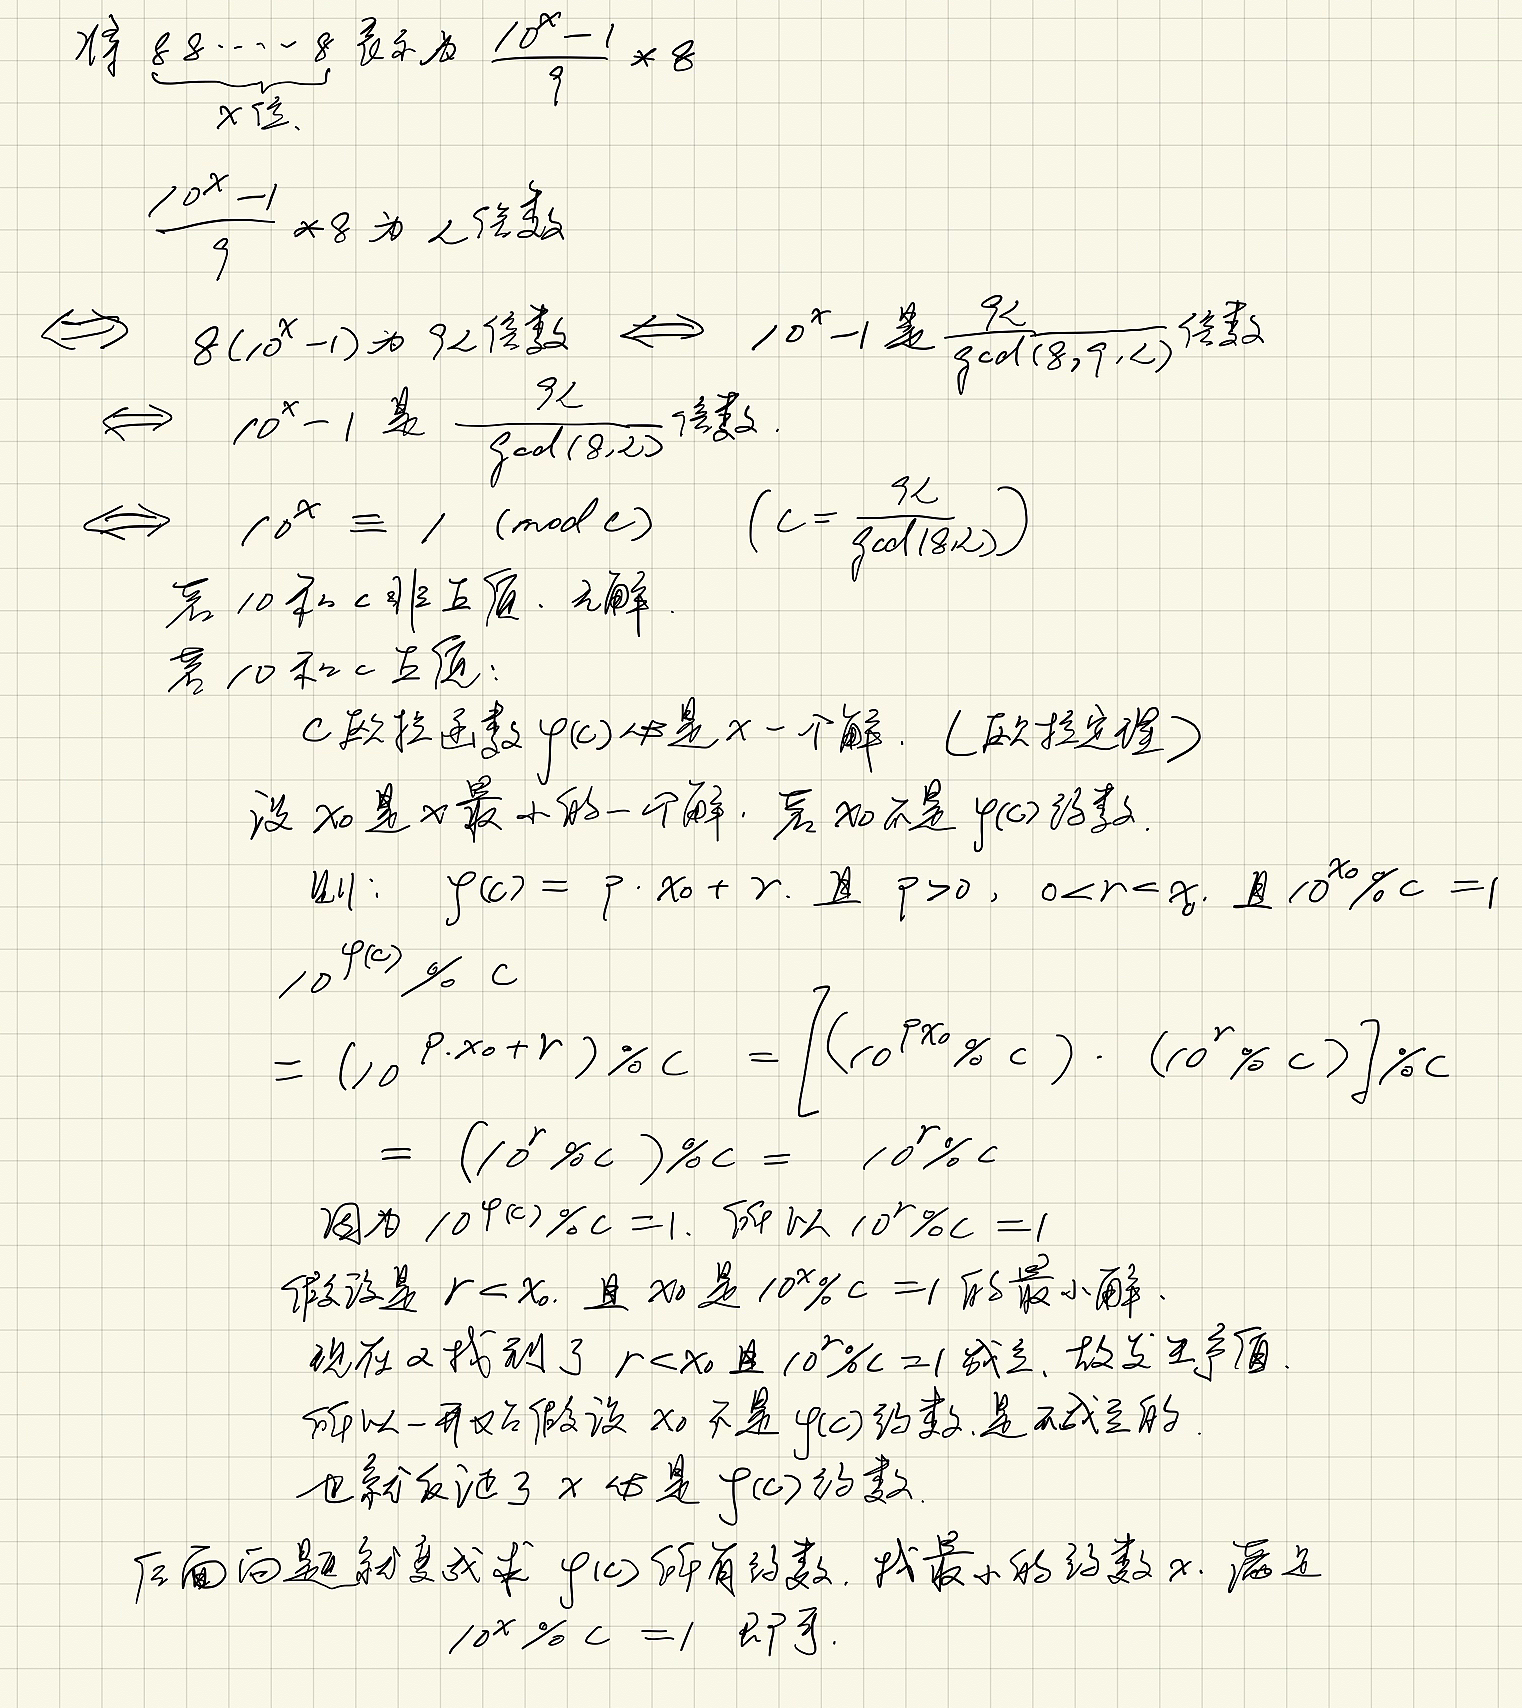 将 88·····8 表示为 \frac{10^x-1}{9} * 8
x位.
\frac{10^x-1}{9} * 8 为 L 倍数
⟺ 8(10^x-1)为 9L倍数 ⟺ 10^x-1 是 \frac{9L}{gcd(8,9L)} 倍数
⟺ 10^x-1 是 \frac{9L}{gcd(8,L)} 倍数.
⟺ 10^x ≡ 1 (mod c) (c = \frac{9L}{gcd(8,L)})
若 10 和 c 非互质. 无解.
若 10 和 c 互质:
c 欧拉函数 φ(c) 必是 x 一个解. (欧拉定理)
设 x₀ 是 x 最小的一个解. 若 x₀ 不是 φ(c) 约数.
则: φ(c) = p·x₀+r. 且 p>0, 0<r<x₀. 且 10^{x₀}%c =1
10^{φ(c)} % c
= (10^{p·x₀+r})%c = [(10^{px₀}%c)·(10^r%c)]%c
= (10^r%c)%c = 10^r%c
因为 10^{φ(c)}%c=1. 所以 10^r%c=1
假设是 r<x₀. 且 x₀ 是 10^x%c=1 的最小解.
现在又找到了 r<x₀ 且 10^r%c=1 成立. 故发生矛盾.
所以一开始假设 x₀ 不是 φ(c) 约数.是不成立的.
也就反证了 x 必是 φ(c) 约数.
后面问题就变成求 φ(c) 所有约数. 找最小的约数 x. 满足
10^x%c =1 即可.